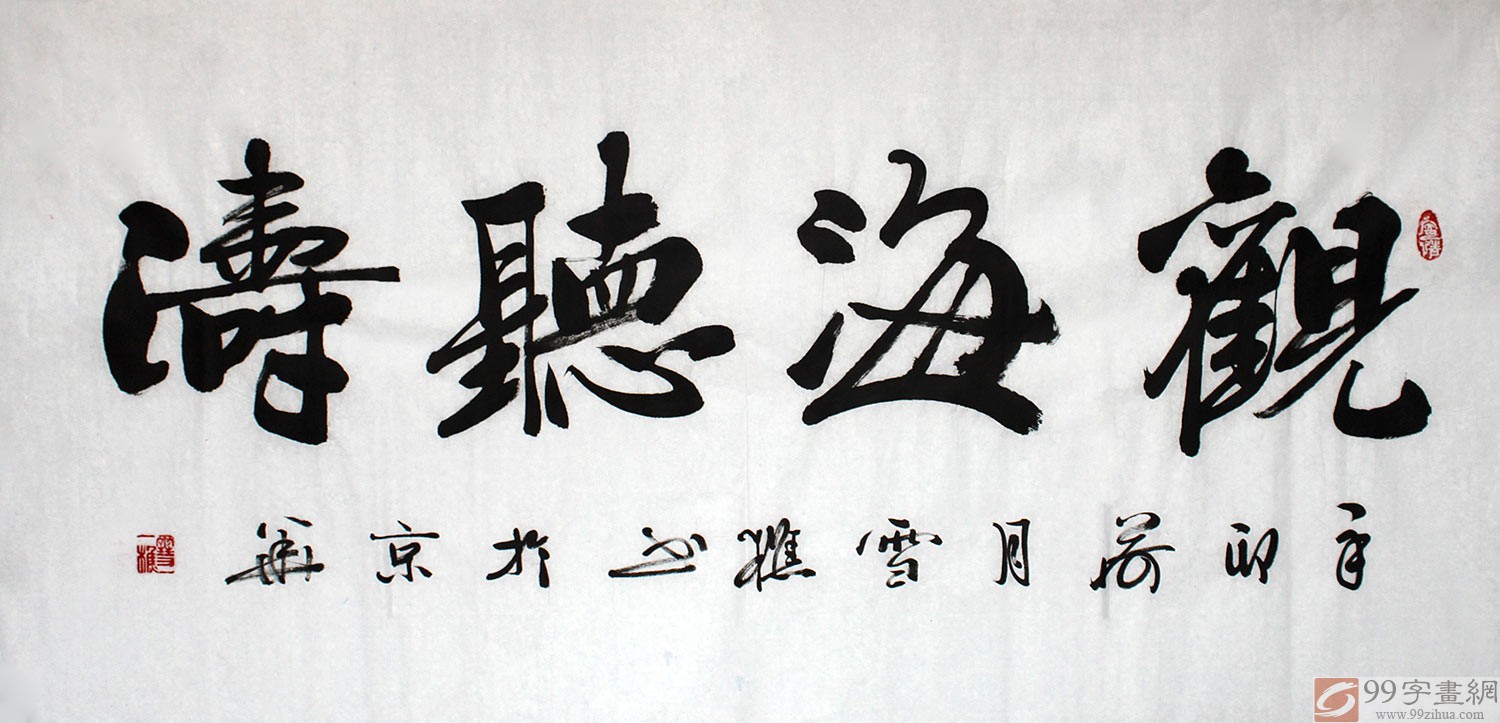 觀海聽濤
辛卯荷月雪樵书於京華
99字畫網
www.99zihua.com